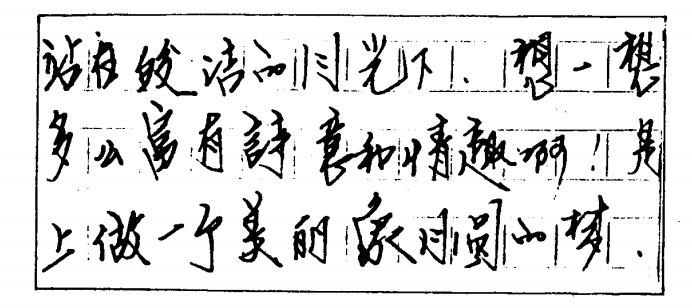 站在皎洁的月光下．想一想
多么富有詩意和情趣啊！
上做一个美丽象月圆的梦．